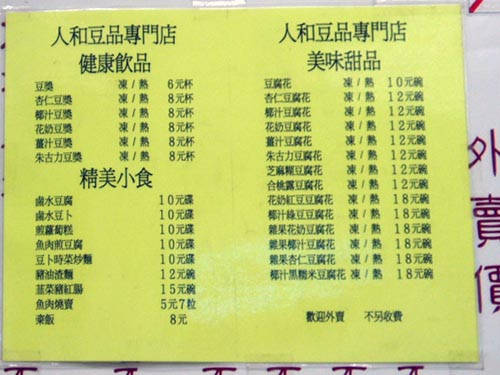 人和豆品專門店
健康飲品
豆獎 凍/熱 6元杯
杏仁豆獎 凍/熱 8元杯
椰汁豆獎 凍/熱 8元杯
花奶豆獎 凍/熱 8元杯
薑汁豆獎 凍/熱 8元杯
朱古力豆獎 凍/熱 8元杯
精美小食
鹵水豆腐 10元碟
鹵水豆卜 10元碟
煎蘿蔔糕 10元碟
魚肉煎豆腐 10元碟
豆卜時菜炒麵 10元碟
豬油渣麵 12元碗
韮菜豬紅腸 15元碗
魚肉燒賣 5元7粒
粢飯 8元
人和豆品專門店
美味甜品
豆腐花 凍/熱 10元碗
杏仁豆腐花 凍/熱 12元碗
椰汁豆腐花 凍/熱 12元碗
花奶豆腐花 凍/熱 12元碗
薑汁豆腐花 凍/熱 12元碗
朱古力豆腐花 凍/熱 12元碗
芝麻糊豆腐花 凍/熱 12元碗
合桃露豆腐花 凍/熱 12元碗
花奶紅豆豆腐花 凍/熱 18元碗
椰汁綠豆豆腐花 凍/熱 18元碗
雜果花奶豆腐花 凍/熱 18元碗
雜果椰汁豆腐花 凍/熱 18元碗
雜果杏仁豆腐花 凍/熱 18元碗
椰汁黑糯米豆腐花 凍/熱 18元碗
歡迎外賣 不另收費
外賣價